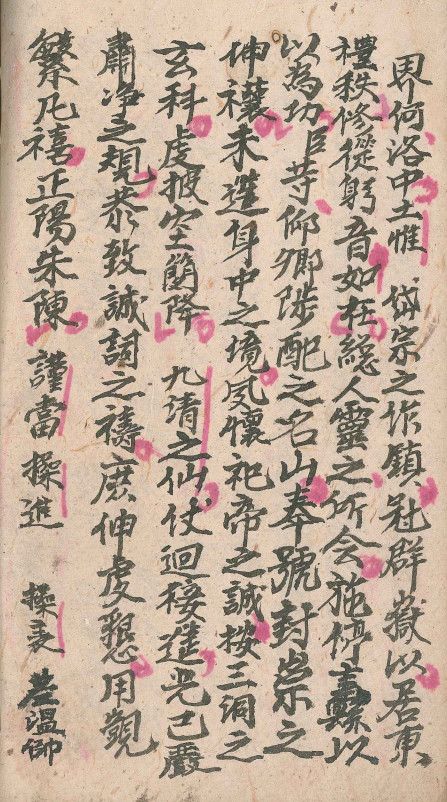 界何洛中土惟 岱宗之作鎮冠群嶽以居東
禮秩修從躬音如在總人靈之所会施停纛以
以為功臣等仰鄉陟配之名山奉號封崇之
坤禳来造身中之境夙懷祀帝之誠按三洞之
玄科虔披空簡降 九清之仙仗迴接蓬光已嚴
肅净之規恭致誠詞之禱庶伸虔懇用觀
繁凡禧正陽朱陳 謹當操進 操表 盖温御